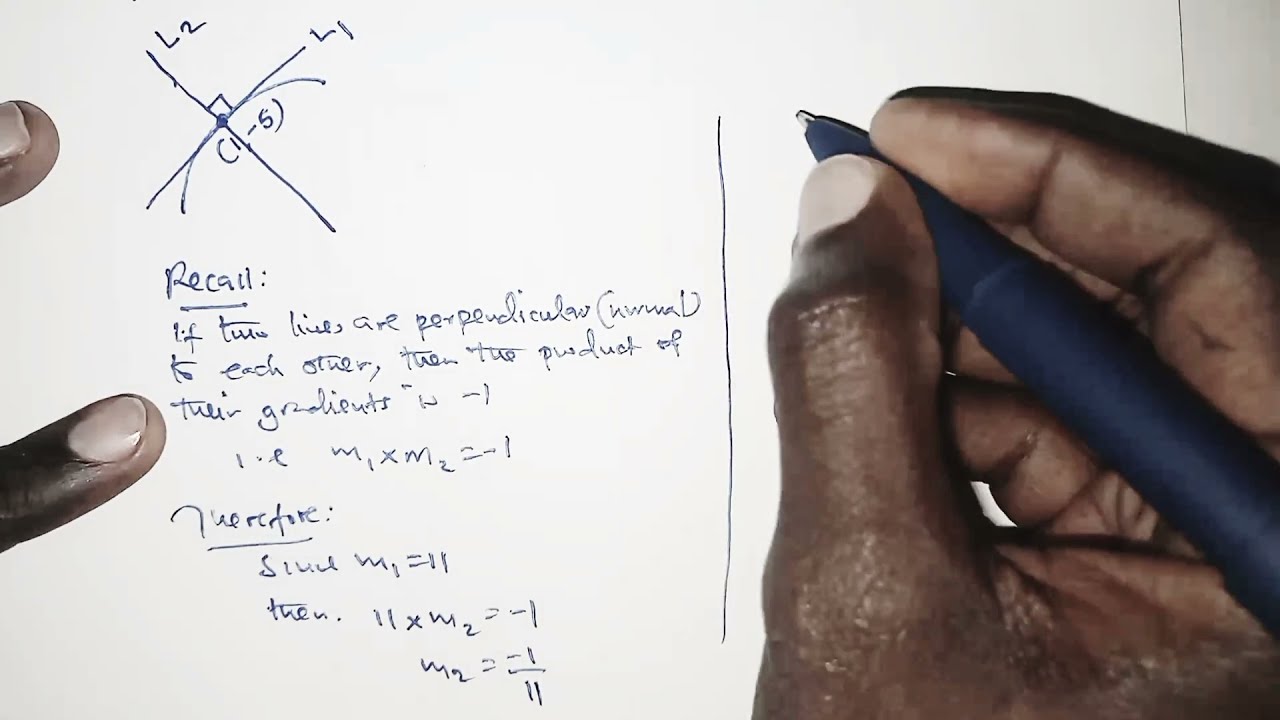 L2
L1
(1,-5)
Recall:
if two lines are perpendicular (normal)
to each other, then the product of
their gradients is -1
i.e m₁ x m₂ = -1
Therefore:
Since m₁ = 11
then. 11 x m₂ = -1
m₂ = -1/11